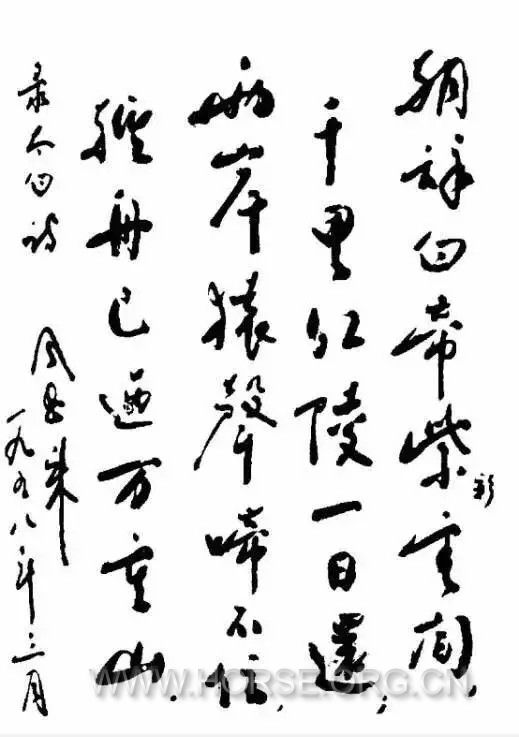 朝辞白帝紫雲间,
彩
千里江陵一日還;
两岸猿聲啼不住,
輕舟已過万重山.
录太白诗
周恩来
一九五八年三月
WWW.HORSE.ORG.CN